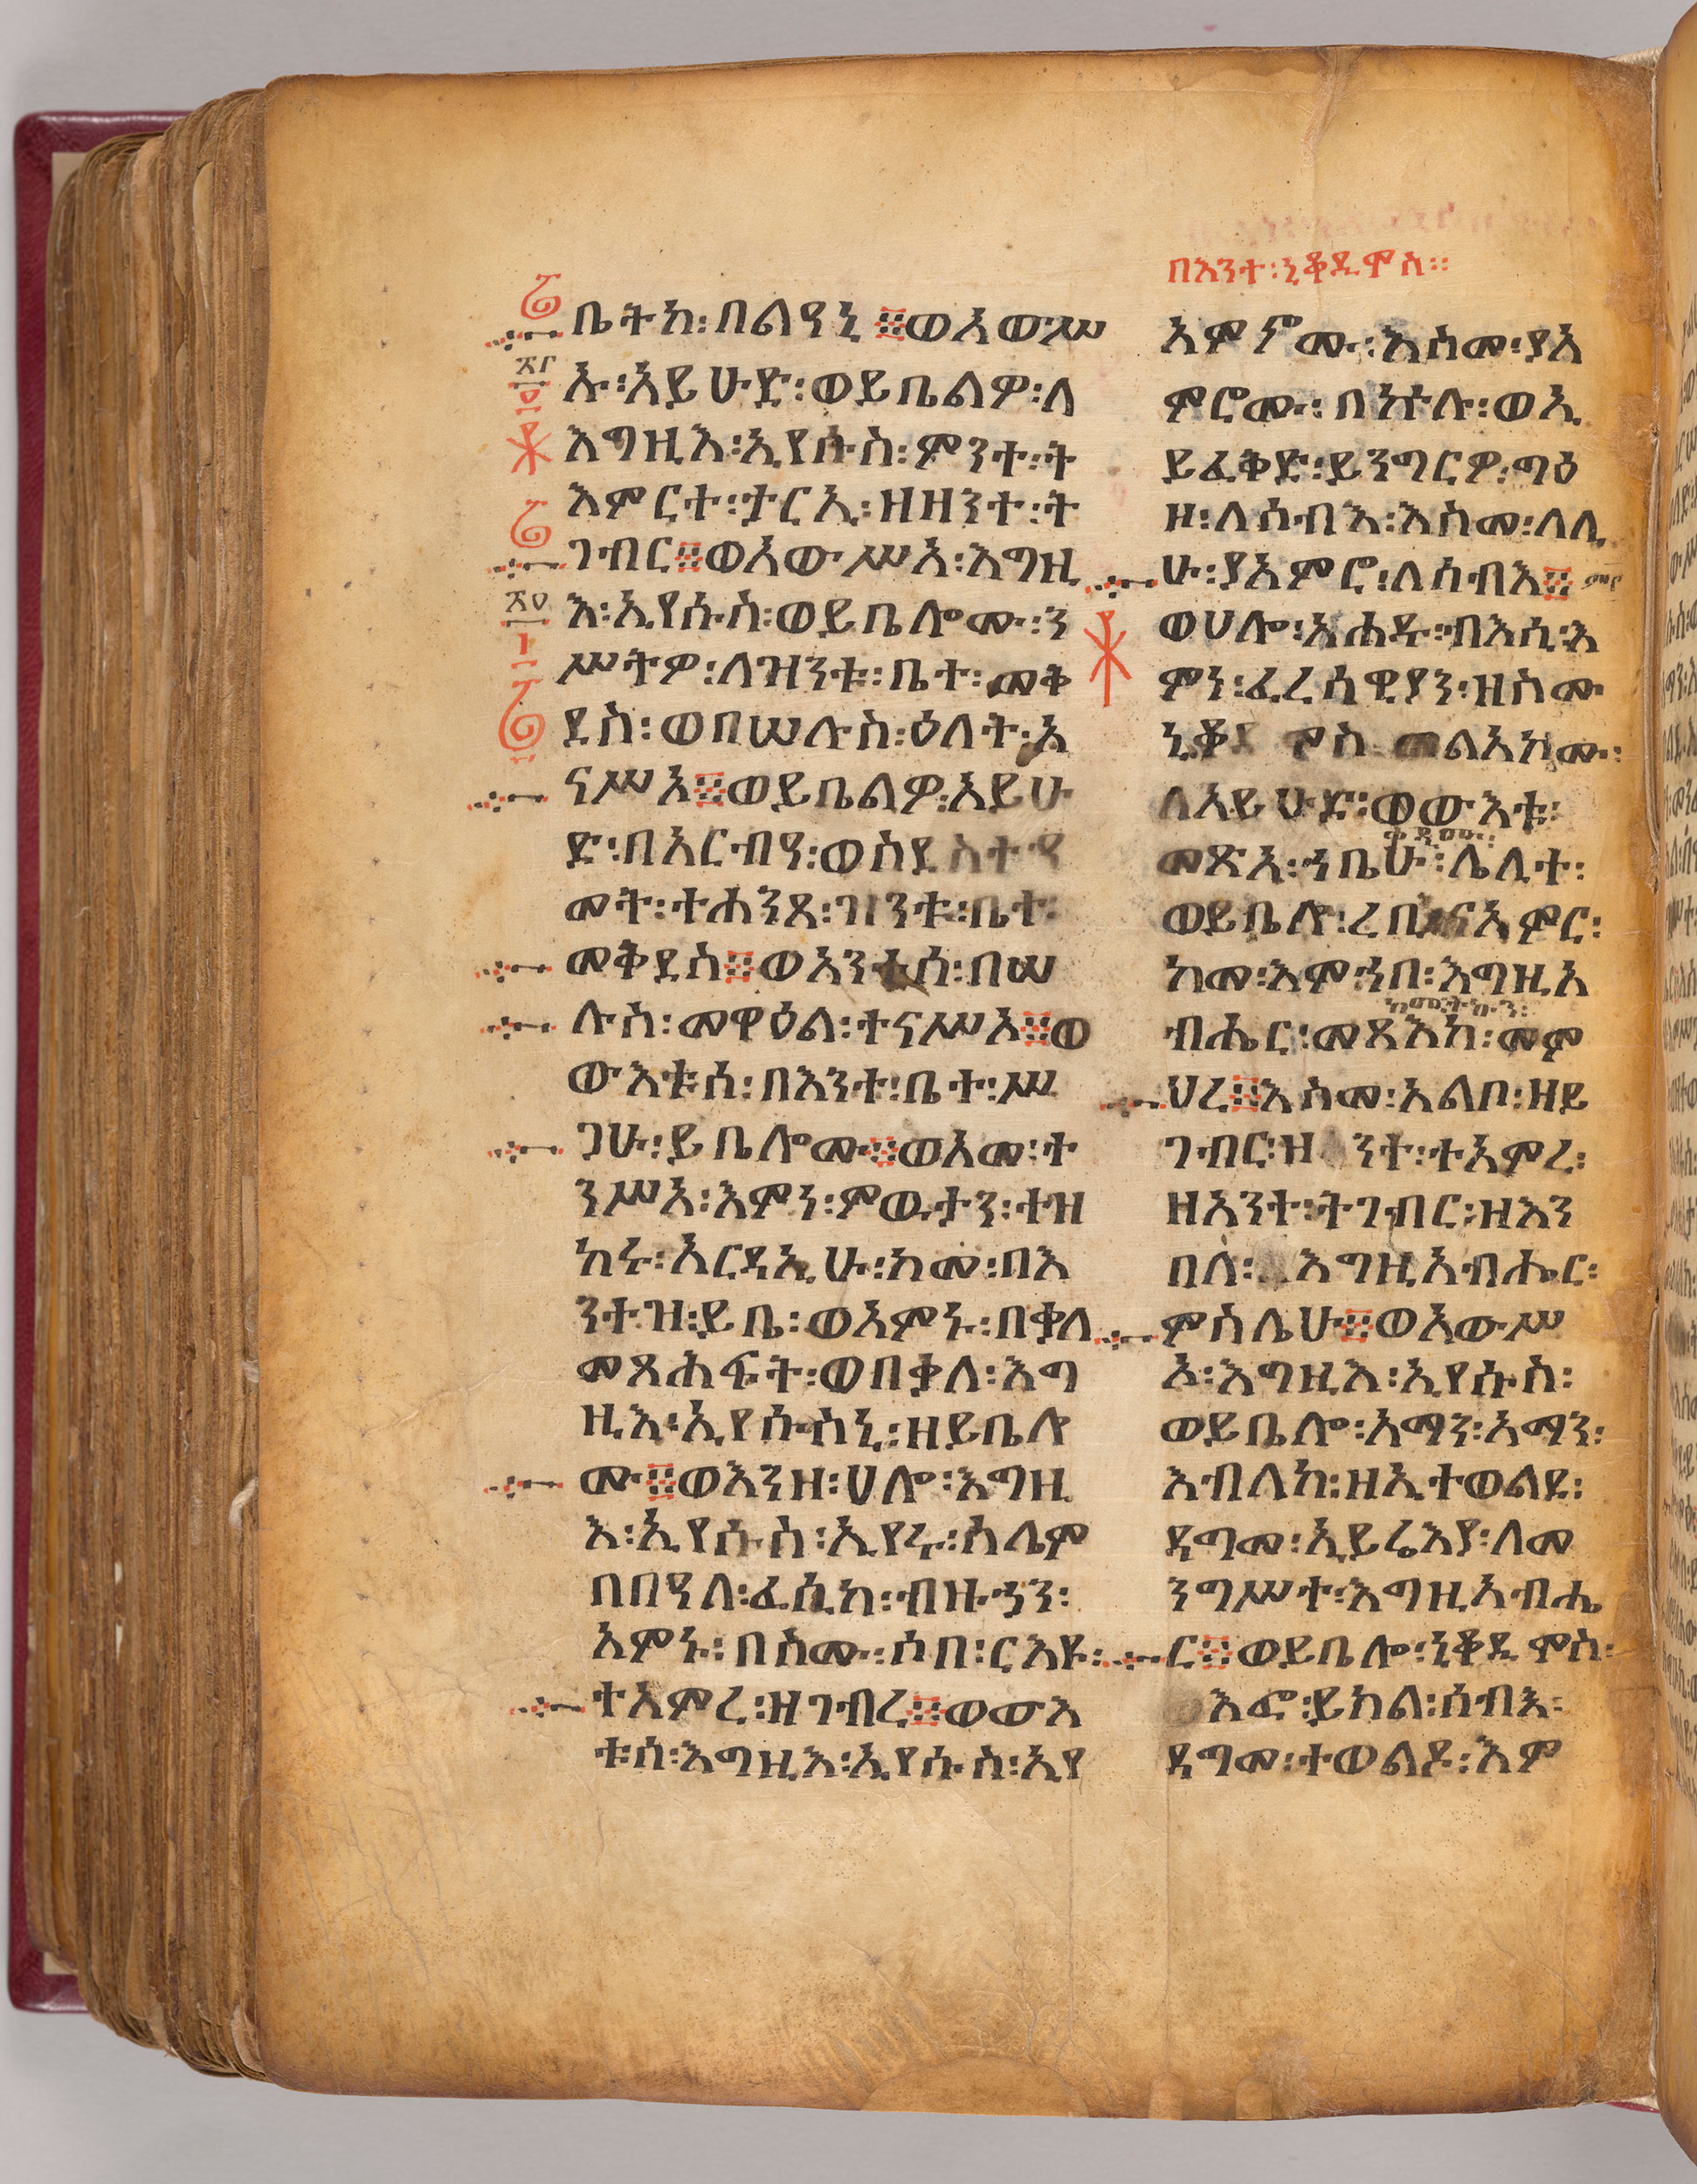 ቤትከ፡በልዓኒ፨ወአውሥ
ኡ፡አይሁድ፡ወይቤልዎ፡ለ
እግዚእ፡ኢየሱስ፡ምንተ፡ት
እምርተ፡ታርኢ፡ዘዘንተ፡ት
ገብር፨ወአውሥአ፡እግዚ
እ፡ኢየሱስ፡ወይቤሎሙ፡ን
ሥትዎ፡ለዝንቱ፡ቤተ፡መቅ
ደስ፡ወበሠሉስ፡ዕለት፡አ
ናሥኦ፨ወይቤልዎ፡አይሁ
ድ፡በአርብዓ፡ወስደስተ፡ዓ
መት፡ተሐንጸ፡ዝንቱ፡ቤተ፡
መቅደስ፨ወአንተሰ፡በሠ
ሉስ፡መዋዕል፡ተናሥኦ፨ወ
ውእቱሰ፡በእንተ፡ቤተ፡ሥ
ጋሁ፡ይቤሎሙ፨ወአመ፡ተ
ንሥአ፡እምነ፡ምዉታን፡ተዝ
ከሩ፡አርዳኢሁ፡ከመ፡በእ
ንተዝ፡ይቤ፡ወአምኑ፡በቃለ
መጻሕፍት፡ወበቃለ፡እግ
ዚእ፡ኢየሱስኒ፡ዘይቤሎ
ሙ፨ወእንዘ፡ሀሎ፡እግዚ
እ፡ኢየሱስ፡ኢየሩ፡ሳሌም
በበዓለ፡ፈሲካ፡ብዙኃን፡
አምኑ፡በስሙ፡ሶበ፡ርእዩ፡
ተአምረ፡ዘገብረ፨ወውእ
ቱሰ፡እግዚእ፡ኢየሱስ፡ኢየ
በእንተ፡ኒቆዲሞስ፡፡
አምኖሙ፡እስመ፡ያአ
ምሮሙ፡በኵሉ፡ወኢ
ይፈቅድ፡ይንግርዎ፡ግዕ
ዘ፡ለሰብእ፡እስመ፡ለሊ
ሁ፡ያአምሮ፡ለሰብእ፨
ወሀሎ፡አሐዱ፡ብእሲ፡እ
ምነ፡ፈረሳዊያን፡ዘስሙ
ኒቆዲሞስ፡መልአኮሙ፡
ለአይሁድ፡ወውእቱ፡
መጽአ፡ኀቤሁ፡ሌሊተ፡
ወይቤሎ፡ረቢ፡ናአምር፡
ከመ፡እም፡ኀበ፡እግዚአ
ከመ፡ትኩን፡
ብሔር፡መጻእከ፡መም
ህረ፨እስመ፡አልቦ፡ዘይ
ገብር፡ዝንተ፡ተአምረ፡
ዘአንተ፡ትገብር፡ዘእን
በለ፡እግዚአብሔር፡
ምስሌሁ፨ወአውሥ
አ፡እግዚእ፡ኢየሱስ፡
ወይቤሎ፡አማን፡አማን፡
እብለከ፡ዘኢተወልደ፡
ዳግመ፡ኢይሬእያ፡ለመ
ንግሥተ፡እግዚአብሔ
ር፨ወይቤሎ፡ኒቆዲሞስ፡
እፎ፡ይክል፡ሰብእ፡
ዳግመ፡ተወልዶ፡እም